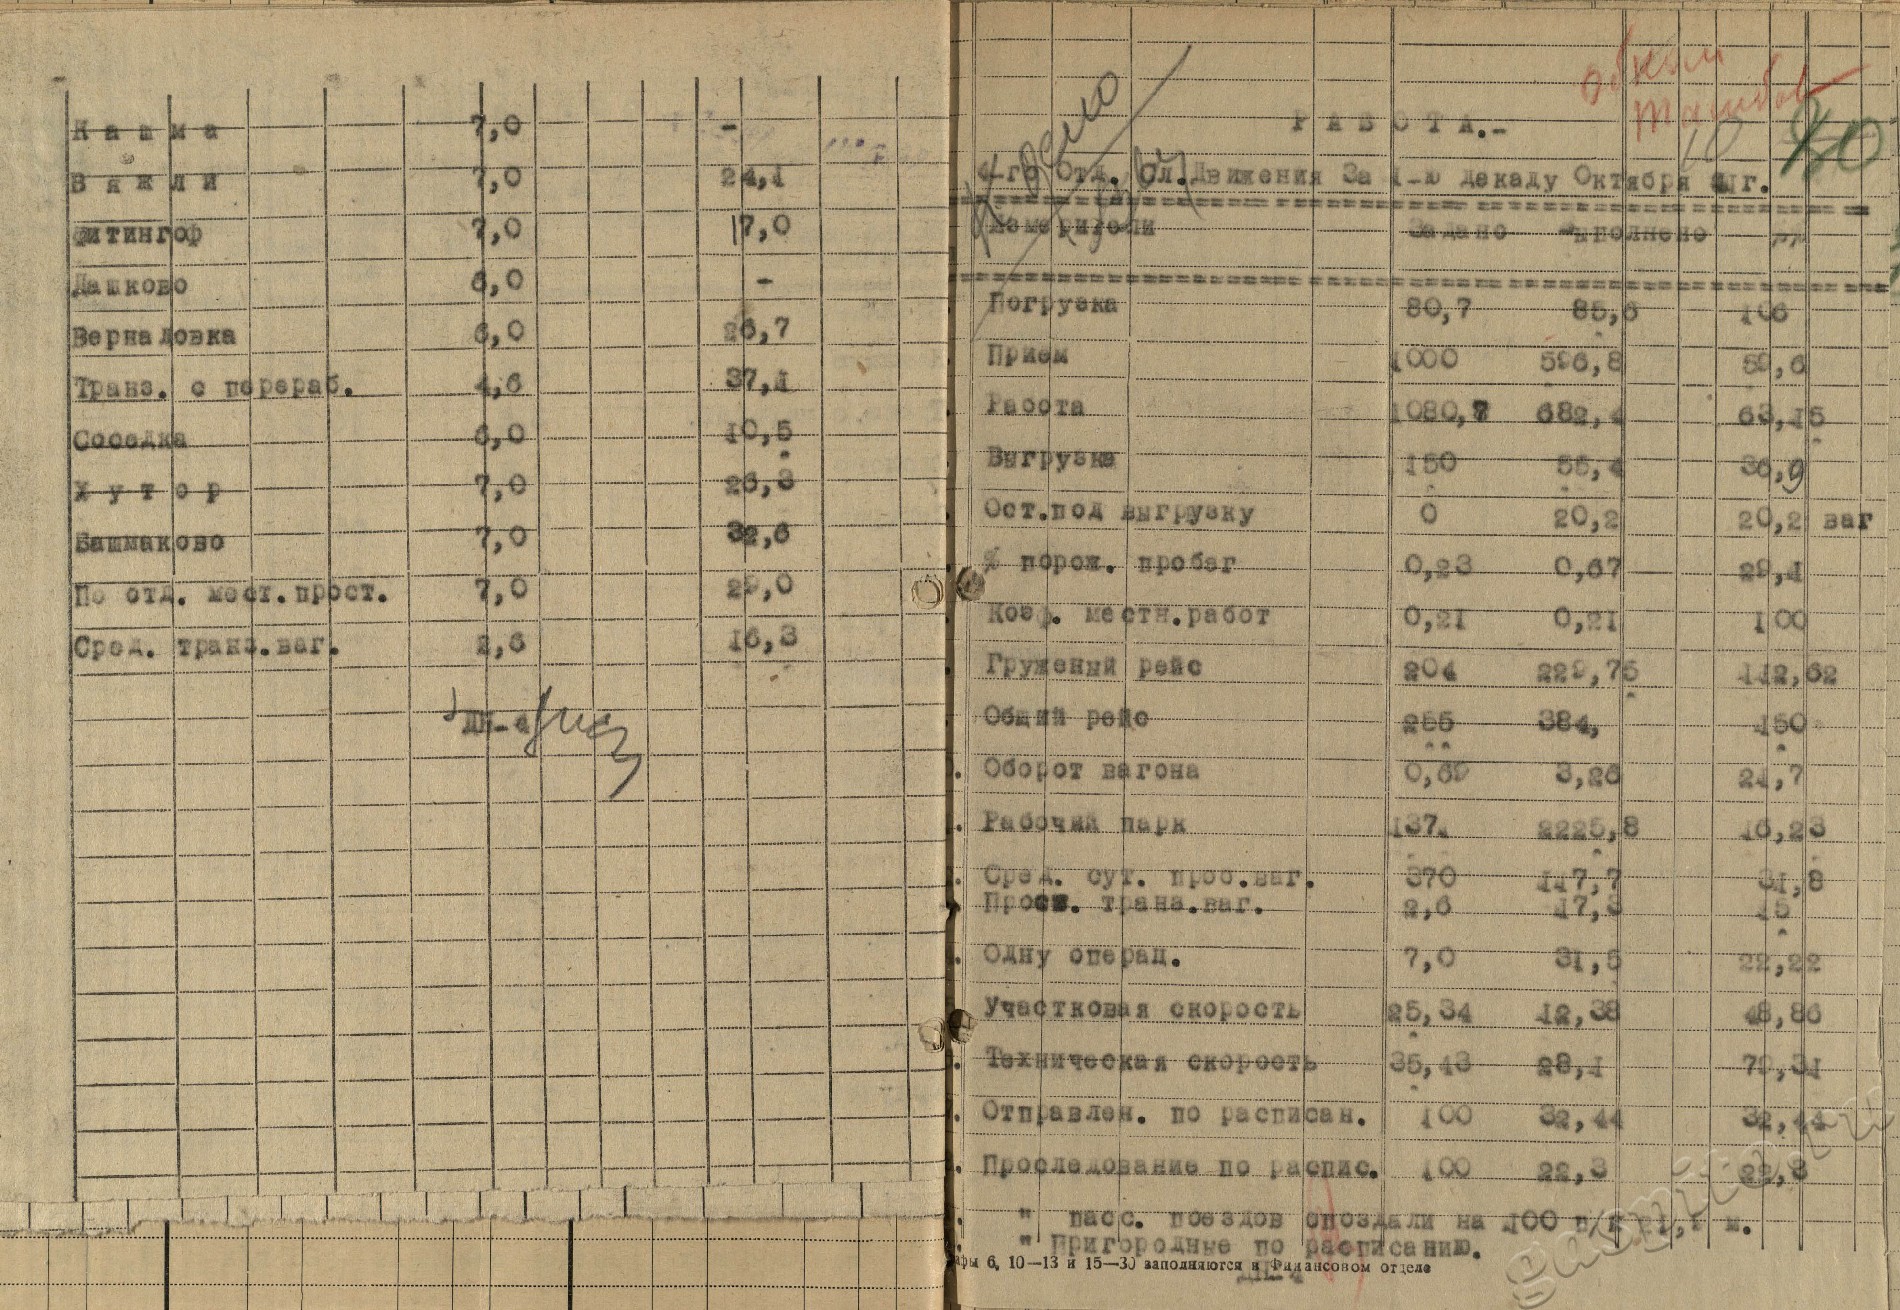 К а ш м а 7,0 -
В я ж л и 7,0 24,1
Фитингоф 7,0 17,0
Дашково 6,0 -
Вернадовка 6,0 26,7
Транз. с перераб. 4,6 37,1
Соседка 6,0 10,5
Х у т о р 7,0 26,3
Башмаково 7,0 32,6
По отд. мест.прост. 7,0 29,0
Сред. транз.ваг. 2,6 16,3
ДН-4
10 80
Р А Б О Т А.-
4-го Отд. Сл.Движения За 1-ю декаду Октября г.
Измерители Задано Выполнено
Погрузка 80,7 85,6 106
Прием 1000 596,8 59,6
Работа 1080,7 682,4 63,15
Выгрузка 150 55,4 36,9
Ост.под выгрузку 0 20,2 20,2 ваг
% порож. пробег 0,23 0,67 29,1
Коэф. местн.работ 0,21 0,21 100
Груженый рейс 204 229,75 112,62
Общий рейс 255 384, 150
Оборот вагона 0,69 3,26 21,7
Рабочий парк 137 2225,8 16,23
Сред. сут. проб.ваг. 370 117,7 31,8
Прост. транз.ваг. 2,6 17,3 15
Одну операц. 7,0 31,5 22,22
Участковая скорость 25,34 12,38 48,86
Техническая скорость 35,43 28,1 79,31
Отправлен. по расписан. 100 32,44 32,44
Проследование по распис. 100 22,3 22,3
" пасс. поездов опоздали на 100 м.
" Пригородные по расписанию.
фы 6, 10—13 и 15—30 заполняются в Финансовом отделе
ДН-4
gaspito.ru